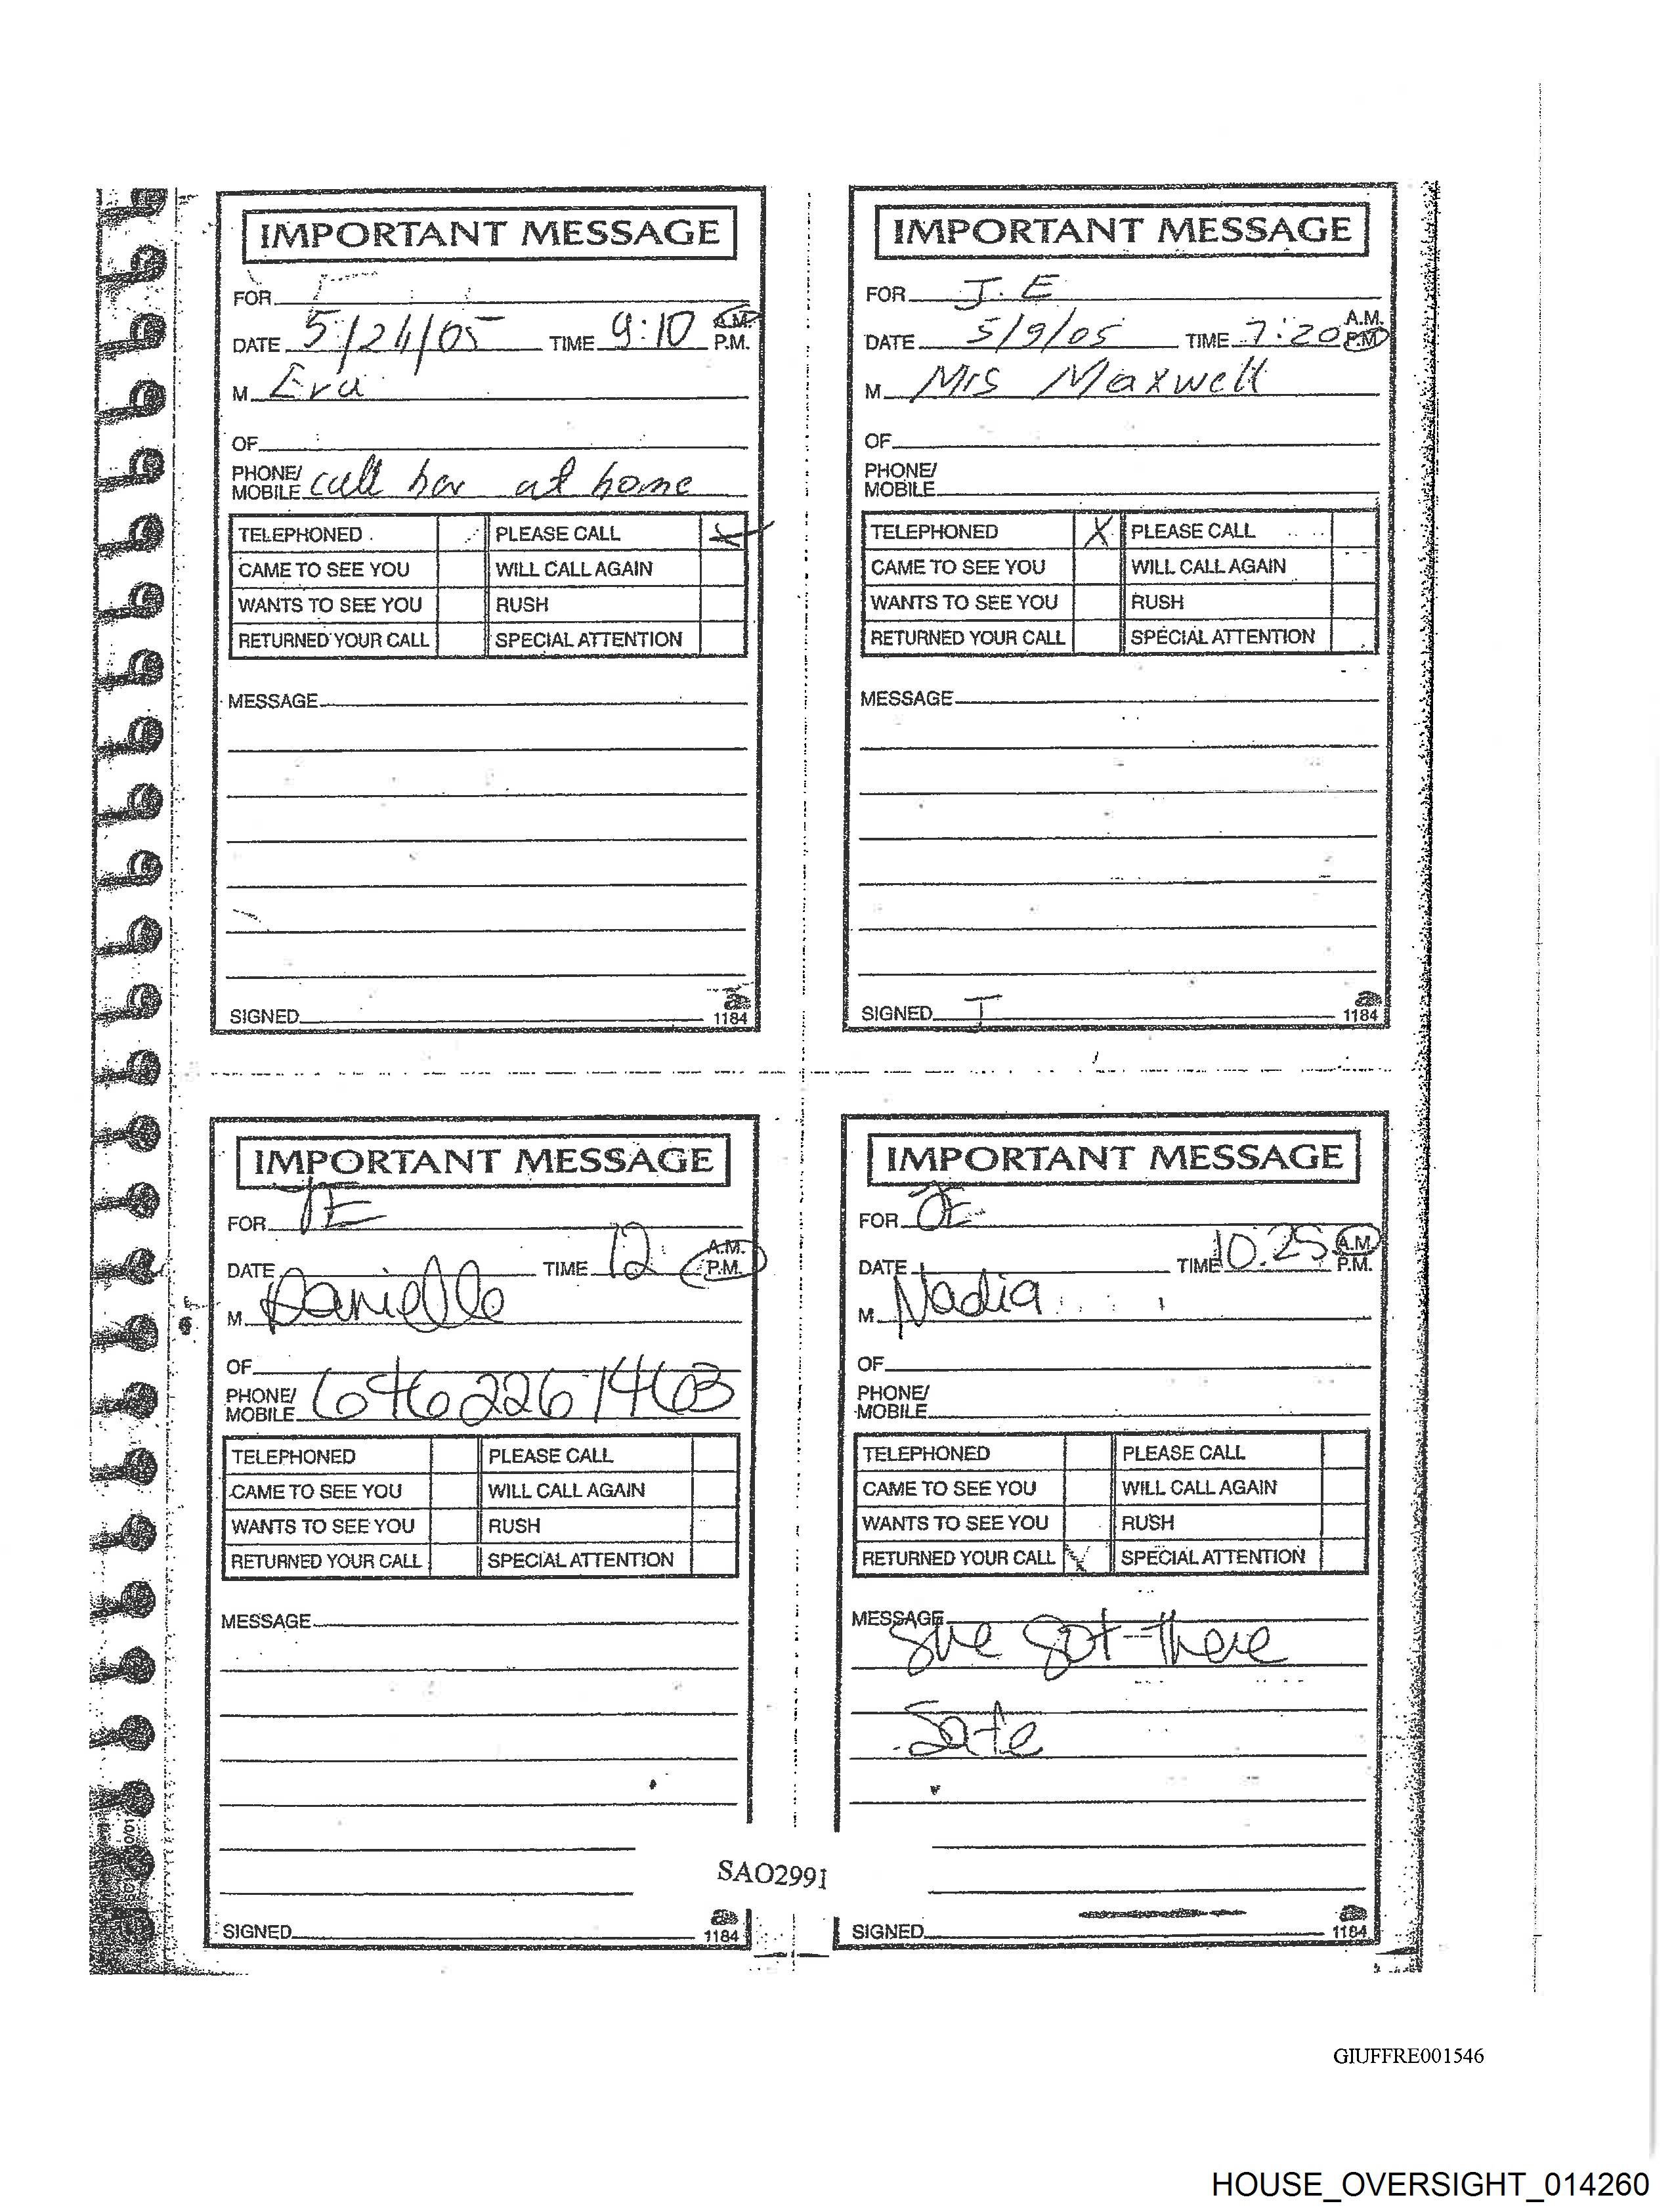 IMPORTANT MESSAGE
FOR
DATE 5/24/05 TIME 9:10 A.M. P.M.
M Eva
OF
PHONE/
MOBILE call her at home
TELEPHONED PLEASE CALL X
CAME TO SEE YOU WILL CALL AGAIN
WANTS TO SEE YOU RUSH
RETURNED YOUR CALL SPECIAL ATTENTION
MESSAGE
SIGNED
1184
IMPORTANT MESSAGE
FOR J.E
DATE 5/9/05 TIME 7:20 A.M. P.M.
M Mrs Maxwell
OF
PHONE/
MOBILE
TELEPHONED X PLEASE CALL
CAME TO SEE YOU WILL CALL AGAIN
WANTS TO SEE YOU RUSH
RETURNED YOUR CALL SPECIAL ATTENTION
MESSAGE
SIGNED J
1184
IMPORTANT MESSAGE
FOR JE
DATE TIME 12 A.M. P.M.
M Danielle
OF
PHONE/
MOBILE 646 226 1463
TELEPHONED PLEASE CALL
CAME TO SEE YOU WILL CALL AGAIN
WANTS TO SEE YOU RUSH
RETURNED YOUR CALL SPECIAL ATTENTION
MESSAGE
SIGNED
1184
IMPORTANT MESSAGE
FOR JE
DATE TIME 10:25 A.M. P.M.
M Nadia
OF
PHONE/
MOBILE
TELEPHONED PLEASE CALL
CAME TO SEE YOU WILL CALL AGAIN
WANTS TO SEE YOU RUSH
RETURNED YOUR CALL SPECIAL ATTENTION
MESSAGE
She got there
Safe
SIGNED
1184
SAO2991
GIUFFRE001546
HOUSE_OVERSIGHT_014260